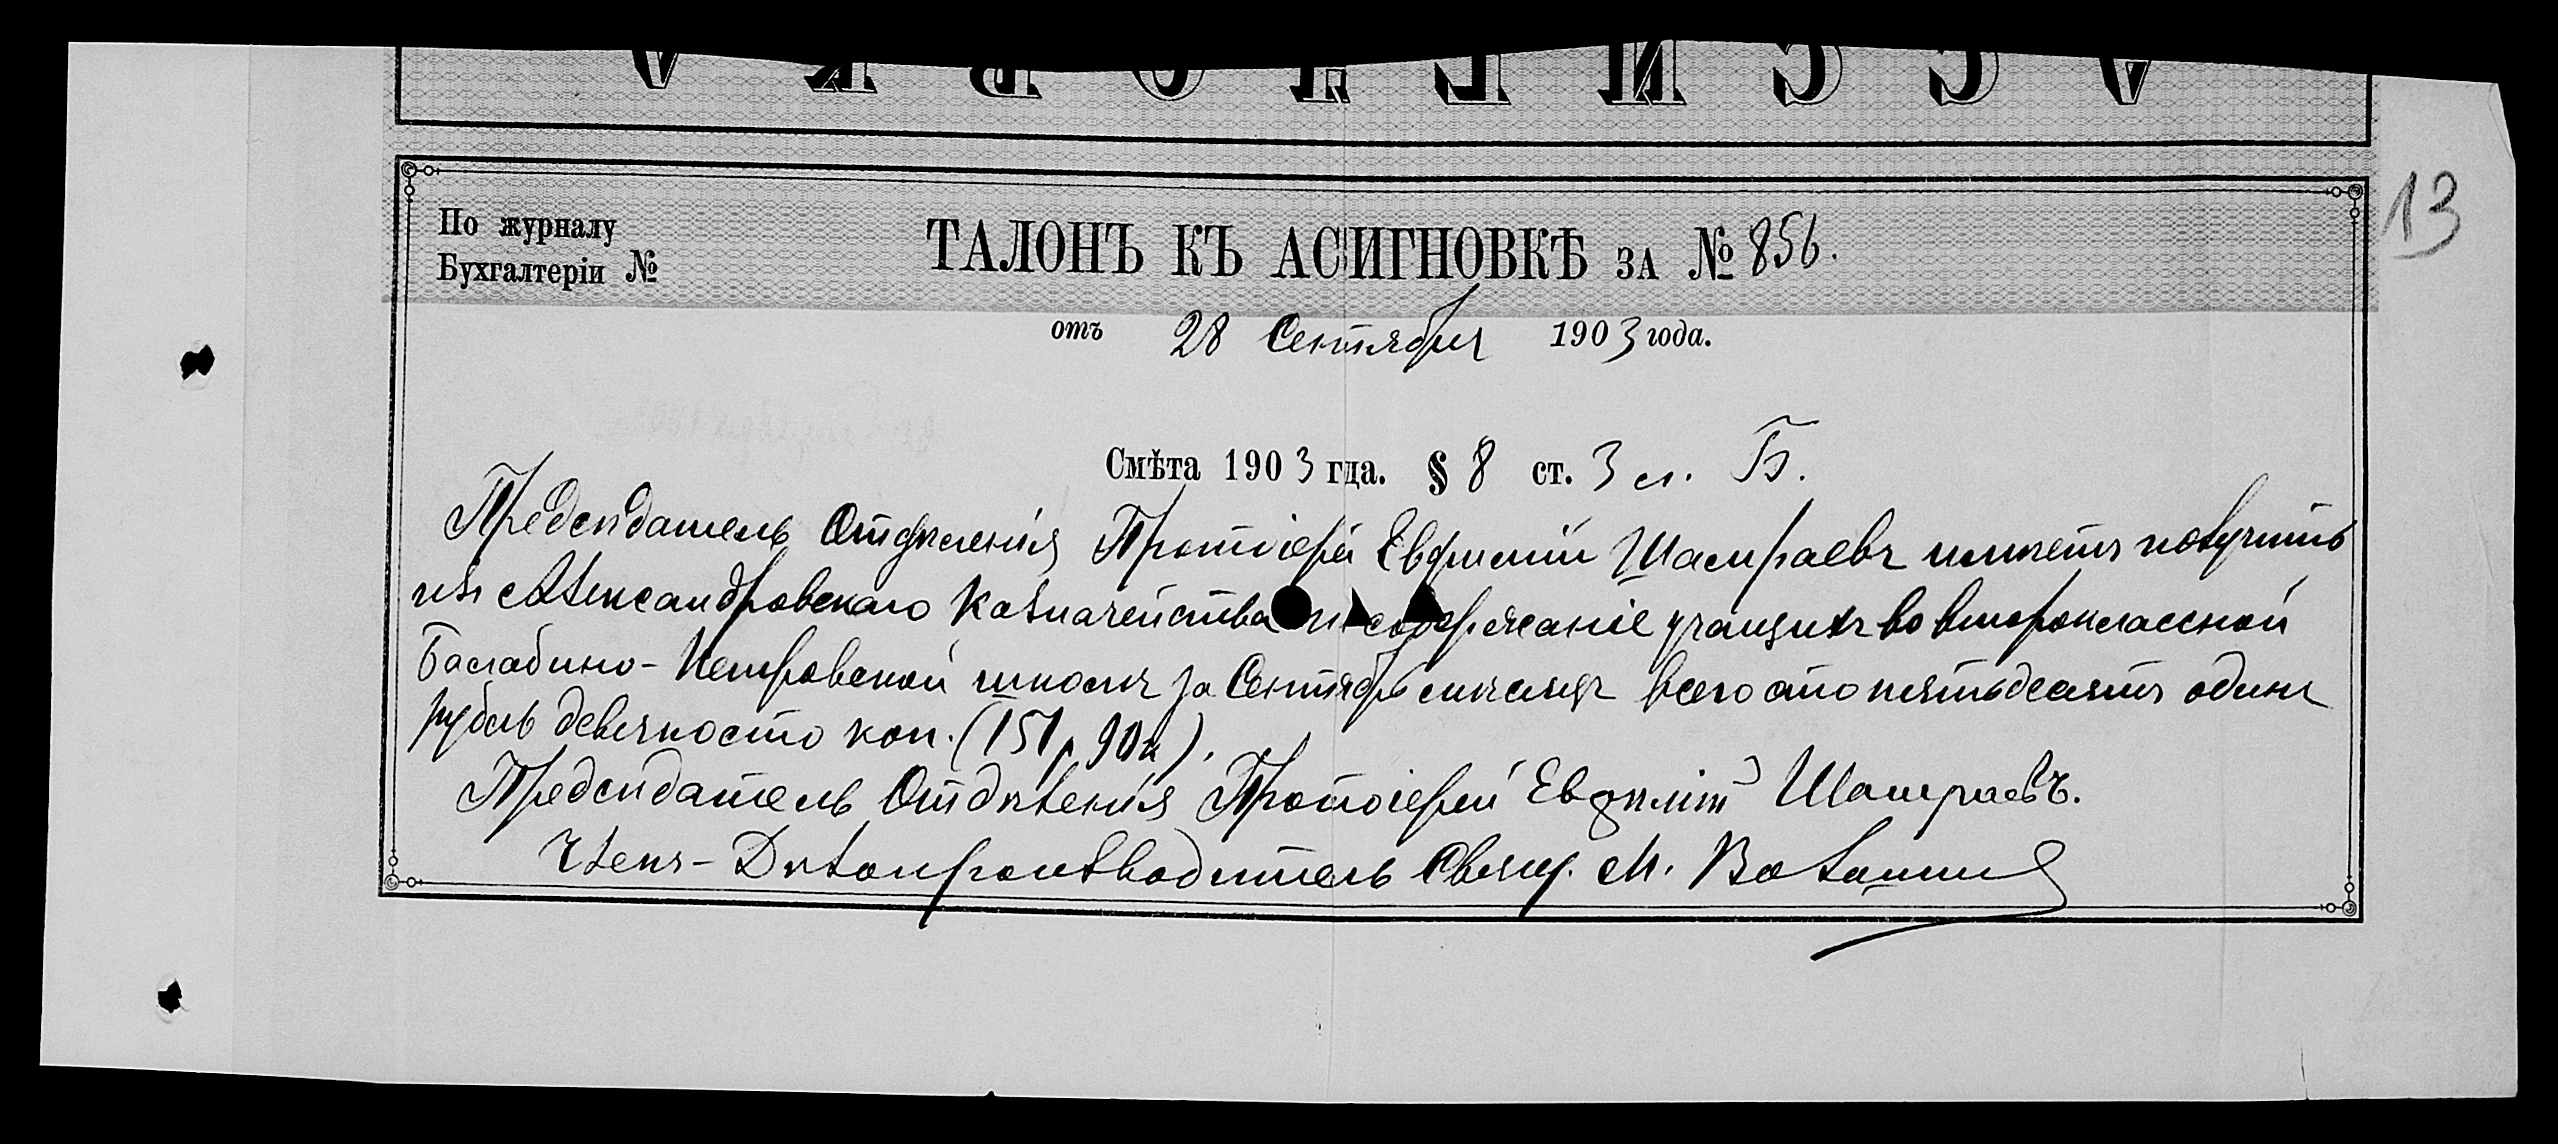 АССИГНОВКА
13
По журналу
Бухгалтеріи №
ТАЛОНЪ КЪ АСИГНОВКѢ ЗА № 856.
отъ 28 Сентября 1903 года.
Смѣта 1903 гда. § 8 ст. 3 л. Б.
Предсѣдатель Отдѣленія Протоіерей Евфимій Шамраевъ имѣетъ получить
изъ Александровскаго Казначейства на содержаніе учащихъ во второклассной
Балабино-Петровской школѣ за Сентябрь мѣсяцъ всего сто пятьдесятъ одинъ
рубль девяносто коп. (151 р 90 к).
Предсѣдатель Отдѣленія Протоіерей Евфимій Шамраевъ.
Членъ-Дѣлопроизводитель Свящ. М.